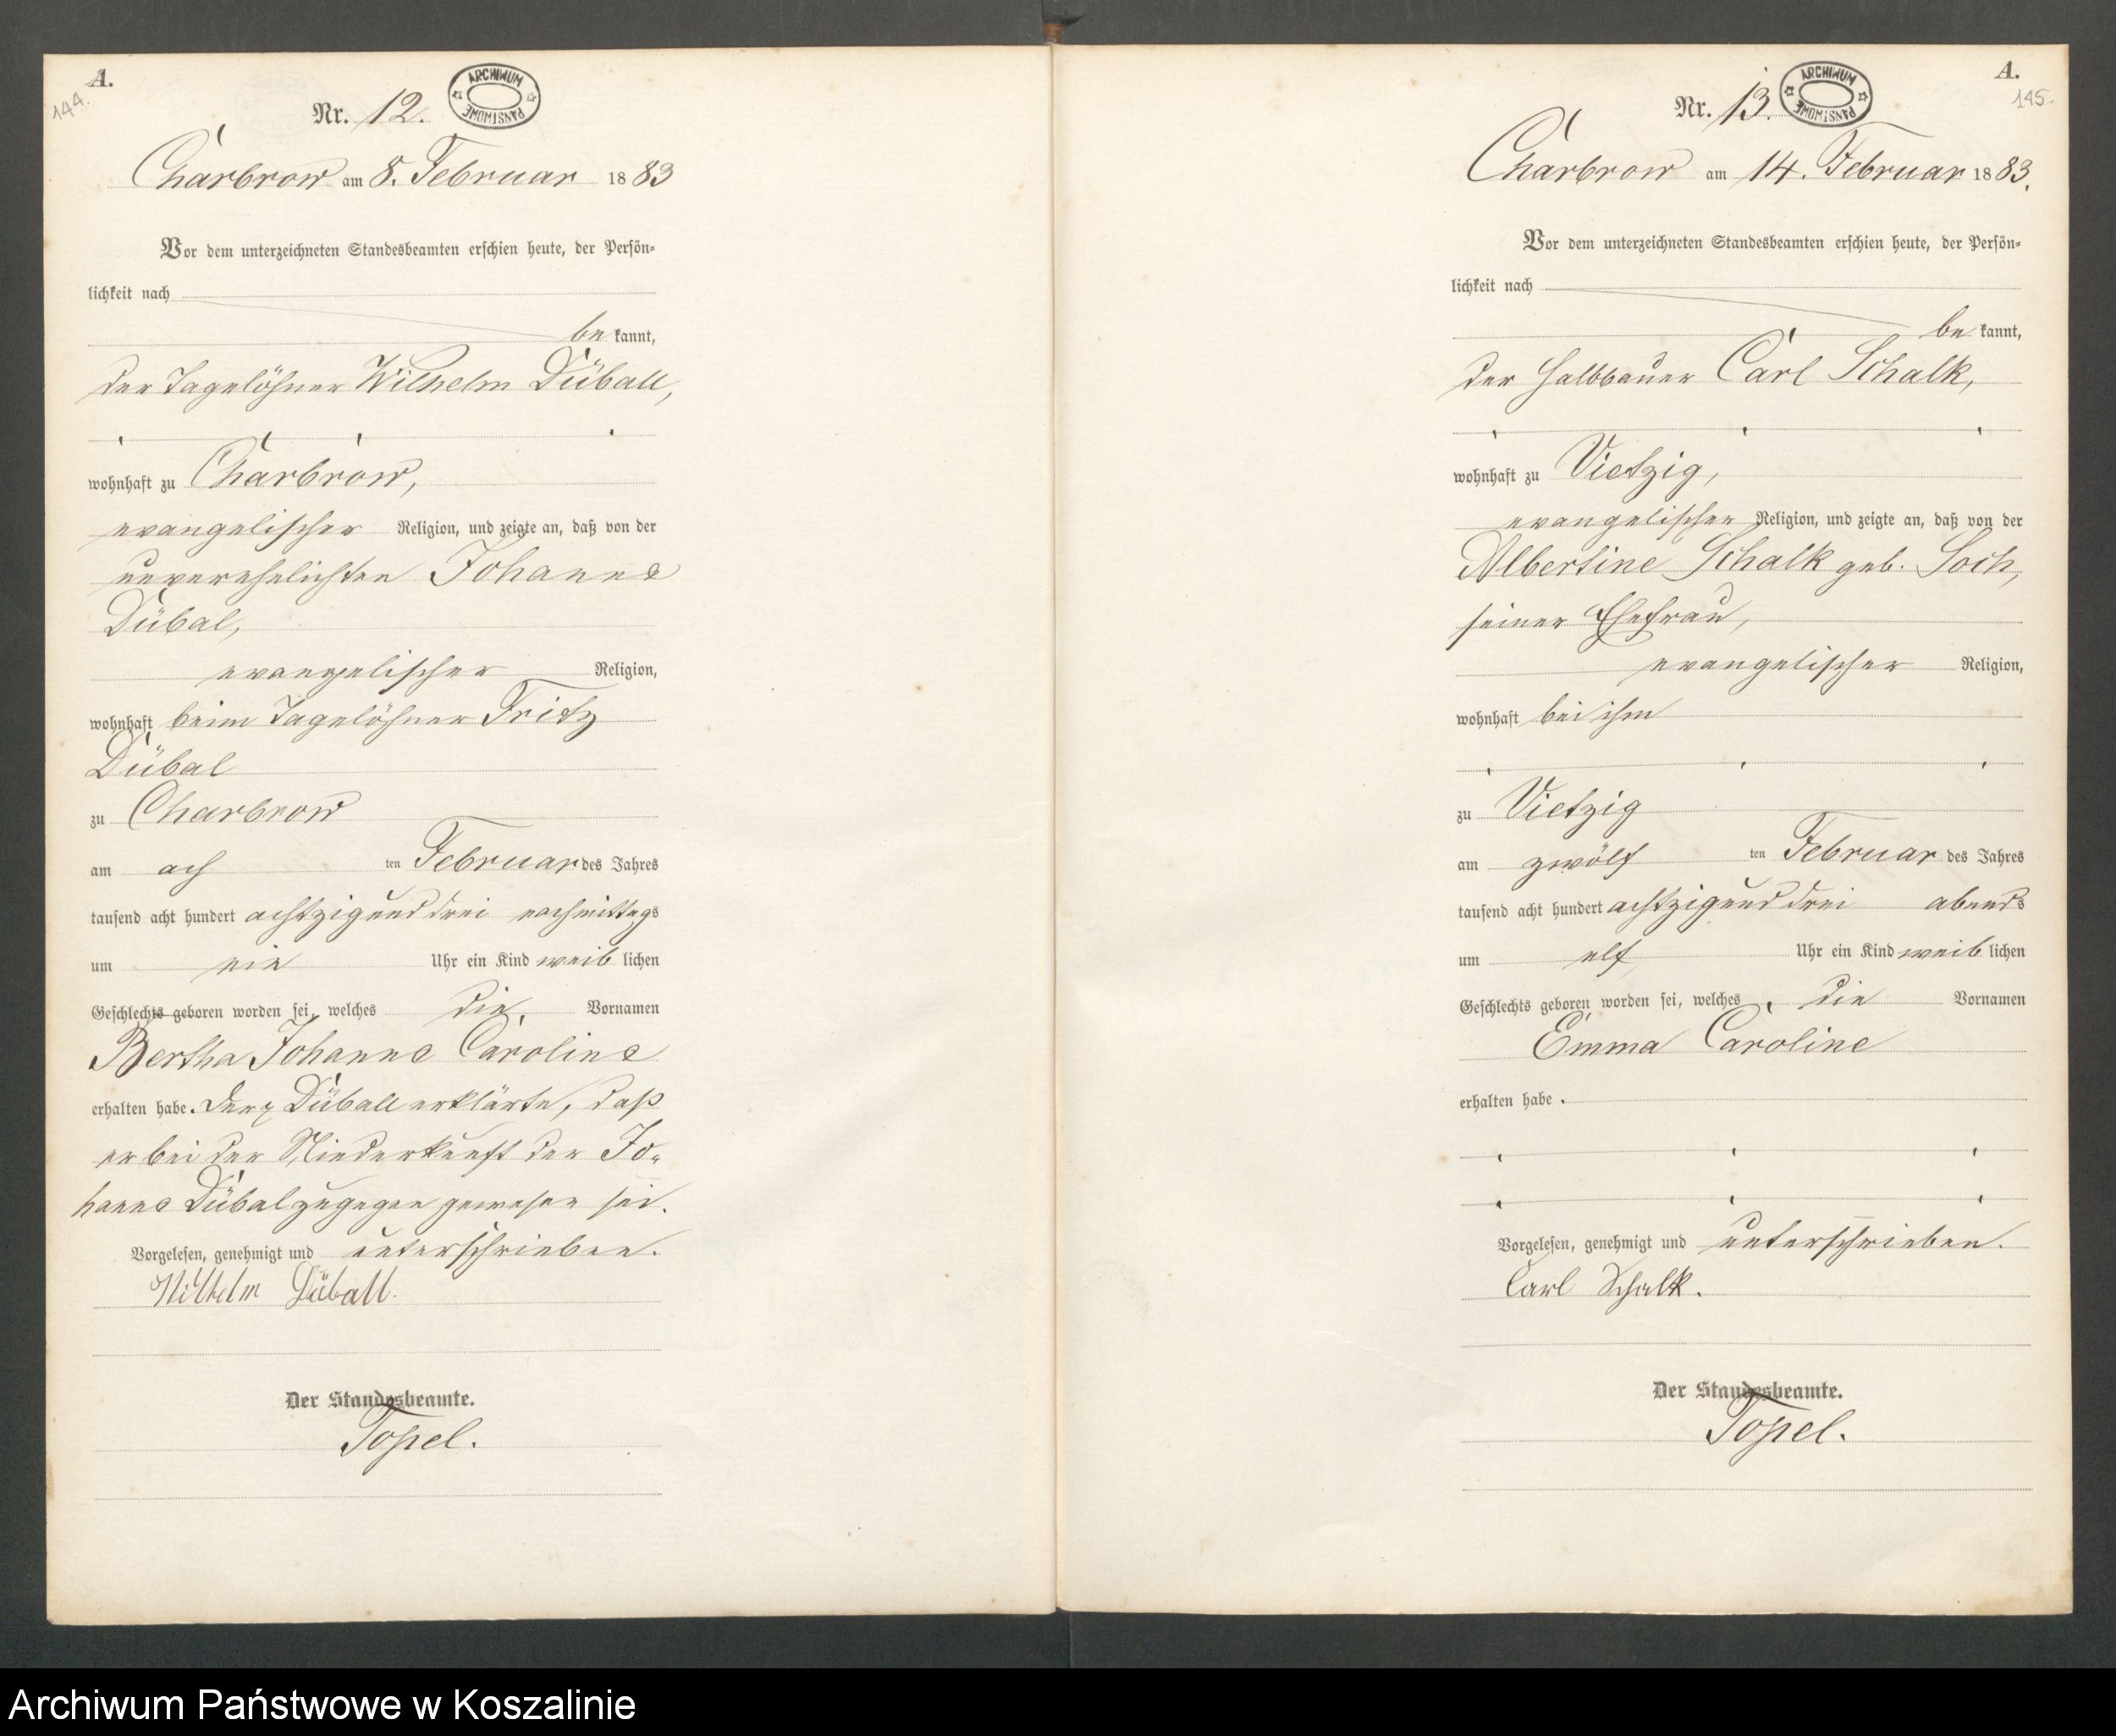 A.
144.
Nr. 12.
ARCHIWUM PAŃSTWOWE
Charbrow am 8. Februar 1883
Vor dem unterzeichneten Standesbeamten erschien heute, der Persön-
lichkeit nach
be kannt,
der Tagelöhner Wilhelm Düball,
wohnhaft zu Charbrow,
evangelischer Religion, und zeigte an, daß von der
unverehelichten Johanne
Dübal,
evangelischer Religion,
wohnhaft beim Tagelöhner Fritz
Dübal
zu Charbrow
am ach ten Februar des Jahres
tausend acht hundert achtzig und drei nachmittags
um ein Uhr ein Kind weib lichen
Geschlechts geboren worden sei, welches die Vornamen
Bertha Johanne Caroline
erhalten habe. Der p Düball erklärte, daß
er bei der Niederkunft der Jo-
hanne Dübal zugegen gewesen sei.
Vorgelesen, genehmigt und unterschrieben.
Wilhelm Düball.
Der Standesbeamte.
Topel.
A.
145.
Nr. 13.
ARCHIWUM PAŃSTWOWE
Charbrow am 14. Februar 1883.
Vor dem unterzeichneten Standesbeamten erschien heute, der Persön-
lichkeit nach
be kannt,
der Halbbauer Carl Schalk,
wohnhaft zu Vietzig,
evangelischer Religion, und zeigte an, daß von der
Albertine Schalk geb. Soch,
seiner Ehefrau,
evangelischer Religion,
wohnhaft bei ihm
zu Vietzig
am zwölf ten Februar des Jahres
tausend acht hundert achtzig und drei abends
um elf Uhr ein Kind weib lichen
Geschlechts geboren worden sei, welches die Vornamen
Emma Caroline
erhalten habe.
Vorgelesen, genehmigt und unterschrieben.
Carl Schalk.
Der Standesbeamte.
Topel.
Archiwum Państwowe w Koszalinie